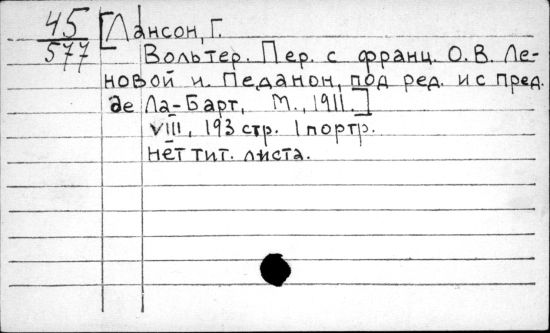 45
577
[Лансон, Г.
Вольтер. Пер. с франц. О. В. Ле-
новой и. Педанон, под ред. и с пред.
де Ла-Барт, М., 1911.]
VIII, 193 стр. 1 портр.
нет тит. листа.